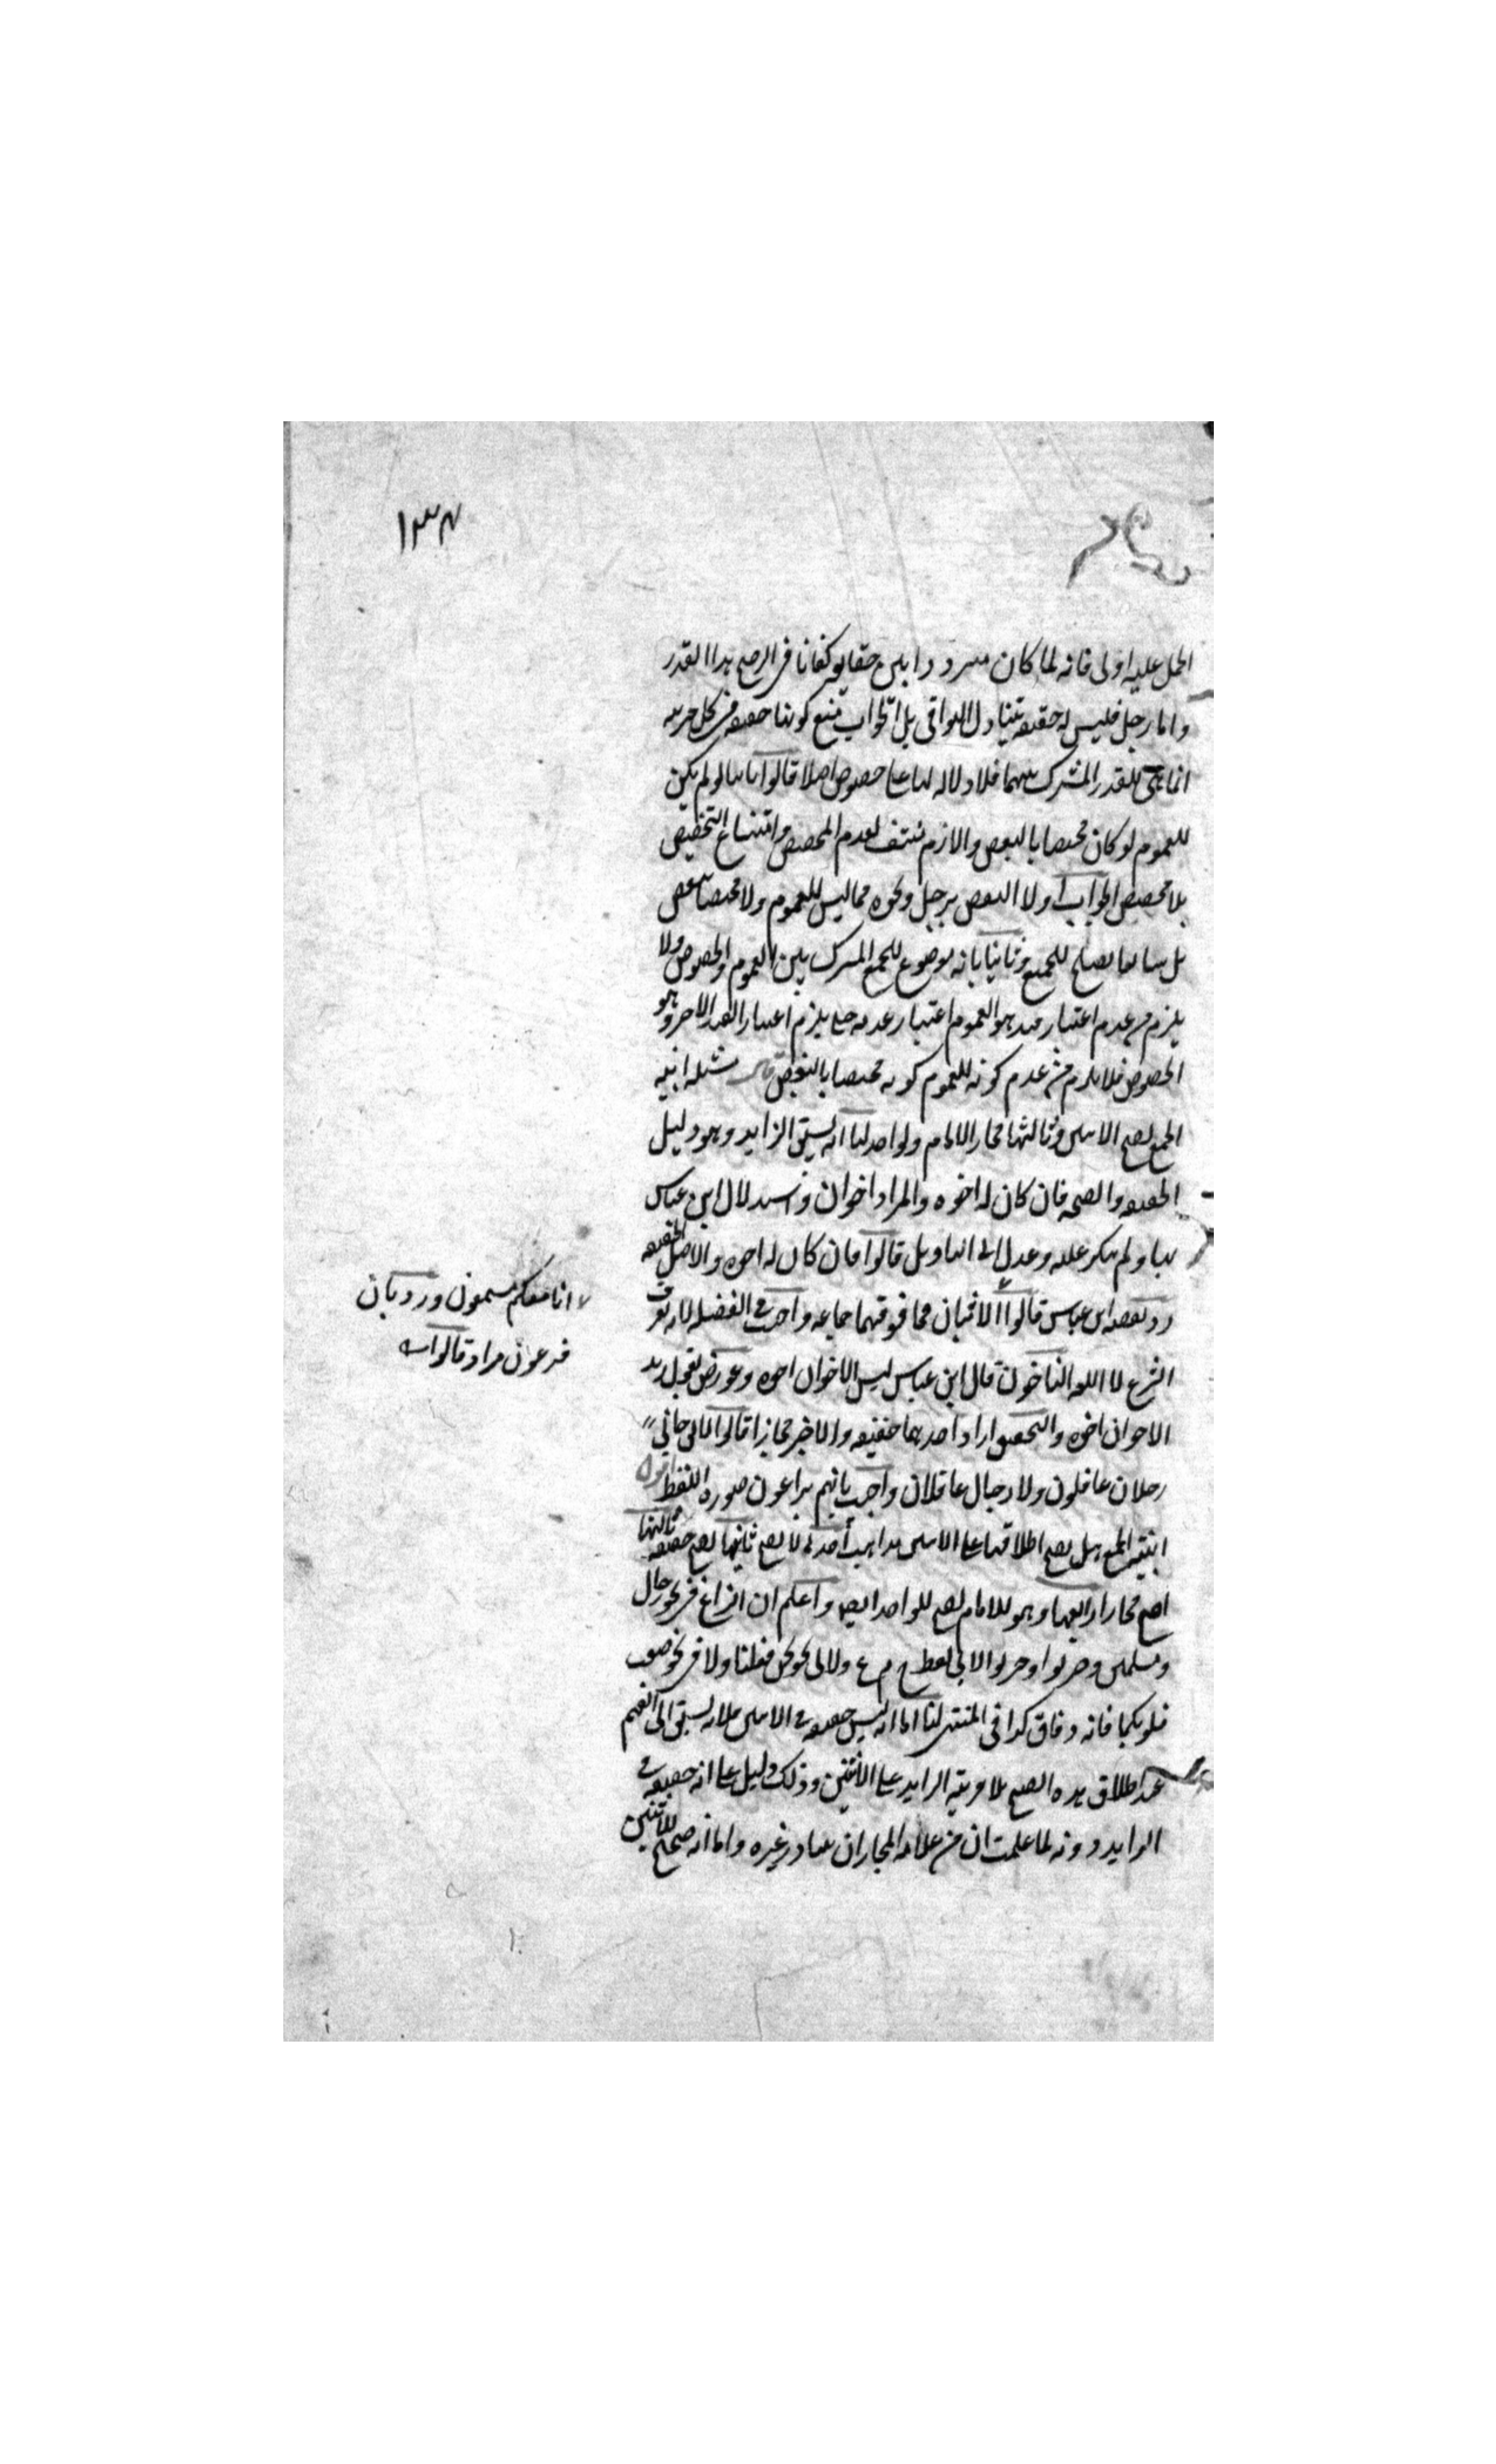 ١٣٤
الحمل عليه اولى فانه لما كان مترددا بين حقايقه كفانا في الترجيح هذا القدر
واما رجل فليس له حقيقة تتناول البواقي بل الجواب منع كونها حقيقة في كل مرتبة
انما هي للقدر المشترك بينهما فلا دلالة لها على خصوص اصلا قالوا ثانيا لو لم يكن
للعموم لو كان مختصا بالبعض والازم منتف لعدم المخصص وامتناع التخصيص
بلا مخصص الجواب اولا النقض برجل ونحوه مما ليس للعموم ولا مختصا ببعض
بل شايعا يصلح للجميع وثانيا بانه موضوع للجمع المشترك بين العموم والخصوص ولا
يلزم من عدم اعتبار قيد هو العموم اعتبار عدمه حتى يلزم اعتبار القيد الاخر وهو
الخصوص فلا يلزم من عدم كونه للعموم كونه مختصا بالبعض قال مسئلة ابنية
الجمع لا يصح لاثنين وثالثها مجاز الامام ولواحد لنا انه يسبق الزايد وهو دليل
الحقيقة والصحة فان كان له اخوة والمراد اخوان واستدلال ابن عباس
بها ولم ينكر عليه وعدل الى التاويل قالوا فان كان له اخوة والاصل الحقيقة
رد بقصة ابن عباس قالوا الاثنان فما فوقهما جماعة واجيب في الفضيلة لانه يعرف
الشرع لا اللغة النافون قال ابن عباس ليس الاخوان اخوة وعورض بقول زيد
الاخوان اخوة والتحقيق اراد احدهما حقيقة والاخر مجازا قالوا لا يقال جاني
رجلان عاقلون ولا رجال عاقلان واجيب بانهم يراعون صورة اللفظ اقول
ابنية الجمع هل يصح اطلاقها على الاثنين مذاهب احدها لا يصح ثانيها يصح حقيقة ثالثها
يصح مجازا رابعها وهو للامام يصح للواحد ايضا واعلم ان النزاع في نحو رجال
ومسلمين وضربوا واضربوا لا في لفظ ج م ع ولا في نحو نحن فعلنا ولا في نحو صغت
قلوبكما فانه وفاق كذا في المنتهى لنا اما انه ليس حقيقة في الاثنين فلانه يسبق الى الفهم
عند اطلاق هذه الصيغ بلا قرينة الزايد على الاثنين وذلك دليل على انه حقيقة في
الزايد دونه لما علمت ان من علامة المجاز ان يتبادر غيره واما انه صحيح للاثنين
انا معكم مستمعون ورد بان
فرعون مراد قالوا